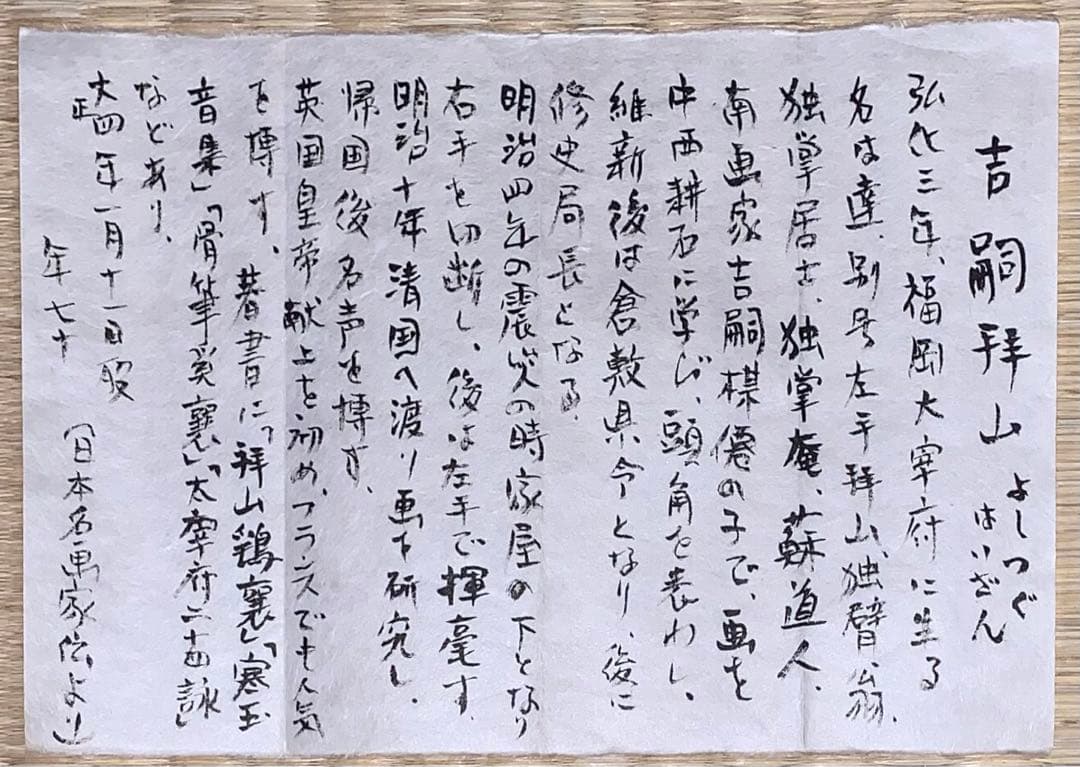 吉嗣拝山 よしつぐ はいざん
弘化三年、福岡大宰府に生る
名は達、別号左手拝山、独臂翁、
独掌居士、独掌庵、蘇道人、
南画家吉嗣楳僊の子で、画を
中西耕石に学び、頭角を表わし、
維新後は倉敷県令となり、後に
修史局長となる、
明治四年の震災の時家屋の下となり
右手を切断し、後は左手で揮毫す、
明治十年清国へ渡り画を研究し、
帰国後名声を博す、
英国皇帝献上を初め、フランスでも人気
を博す、著書に「拝山鶏襄」「寒玉
音集」「骨筆奚襄」「太宰府二十四詠」
などあり、
大正四年一月十一日歿
年七十
(日本名画家伝より)